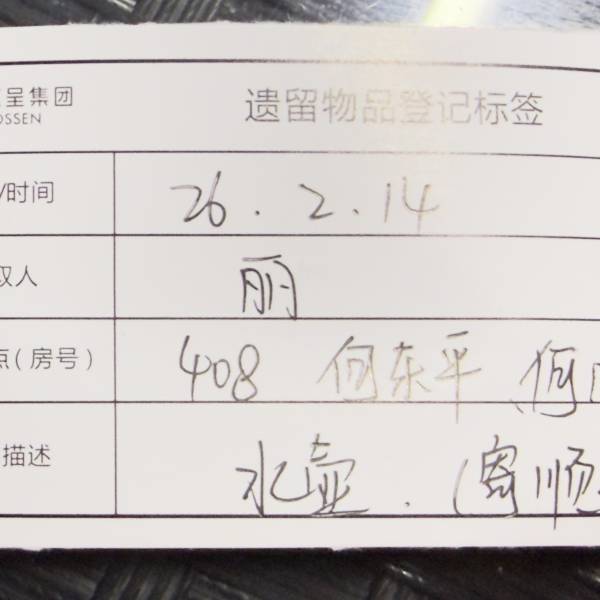 呈集团
OSSEN
遗留物品登记标签
/时间 26.2.14
取人 丽
点(房号) 408 何东平、何
描述 水壶.(寄顺